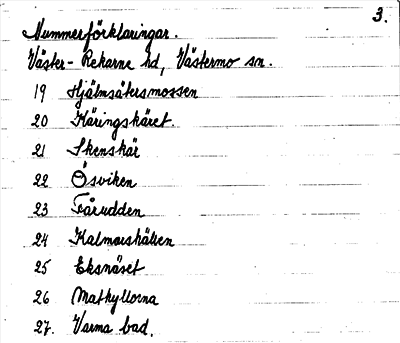 3.
Nummerförklaringar.
Väster-Rekarne hd, Västermo sn.
19 Hjälmsätersmossen
20 Käringskäret.
21 Skenskär
22 Ösviken
23 Fårudden
24
25 Eksnäset
26 Matkyllorna
27. Varma bad.